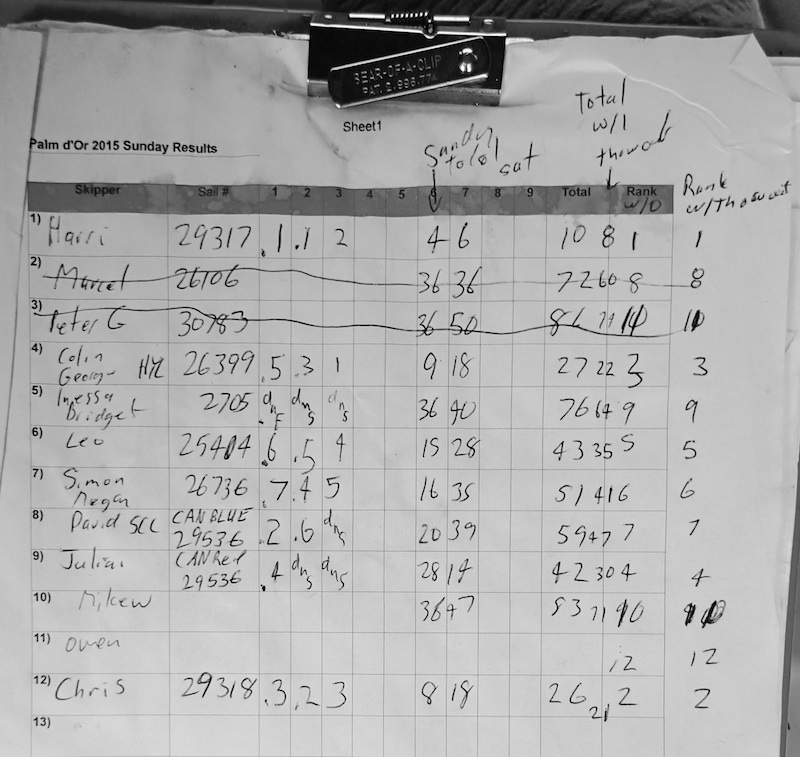 BEAR-OF-A-CLIP
PAT. 2,996,774
Sheet1
Palm d'Or 2015 Sunday Results
Sunday total
sat
Total w/1 thowout
Skipper Sail # 1 2 3 4 5 6 7 8 9 Total Rank w/o
Rank w/Thowout
1) Harri 29317 .1 .1 2 4 6 10 8 1 1
2) Marcel 26106 36 36 72 60 8 8
3) Peter G 30783 36 50 86 11
4) Colin George HYC 26399 .5 .3 1 9 18 27 22 3 3
5) Inessa Bridget 2705 dnf dns dns 36 40 76 64 9 9
6) Leo 25404 .6 .5 4 15 28 43 35 5 5
7) Simon Megan 26736 .7 .4 5 16 35 51 41 6 6
8) David SCC CAN BLUE 29536 .2 .6 dns 20 39 59 47 7 7
9) Julian CAN Red 29536 .4 dns dns 28 14 42 30 4 4
10) Mikew 36 47 83 71 10 10
11) Owen 12 12
12) Chris 29318 .3 .2 3 8 18 26 21 2 2
13)